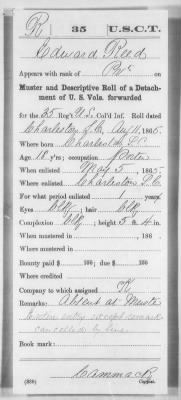 R 35 U.S.C.T.
Edward Reed
Appears with rank of Pvt on
Muster and Descriptive Roll of a Detach-
ment of U. S. Vols. forwarded
for the 35 Reg't U.S. Col'd Inf. Roll dated
Charleston S.C. May 11, 1865.
Where born Charleston, S.C.
Age 18 y'rs; occupation Porter
When enlisted May 5, 1865.
Where enlisted Charleston S.C.
For what period enlisted years.
Eyes Blk; hair Blk
Complexion Blk; height 5 ft. 4 in.
When mustered in , 186 .
Where mustered in
Bounty paid $ 100; due $ 100
Where credited
Company to which assigned K
Remarks: Absent at Muster
Entire entry except remark
cancelled by line.
Book mark:
Cammack
(339) Copyist.